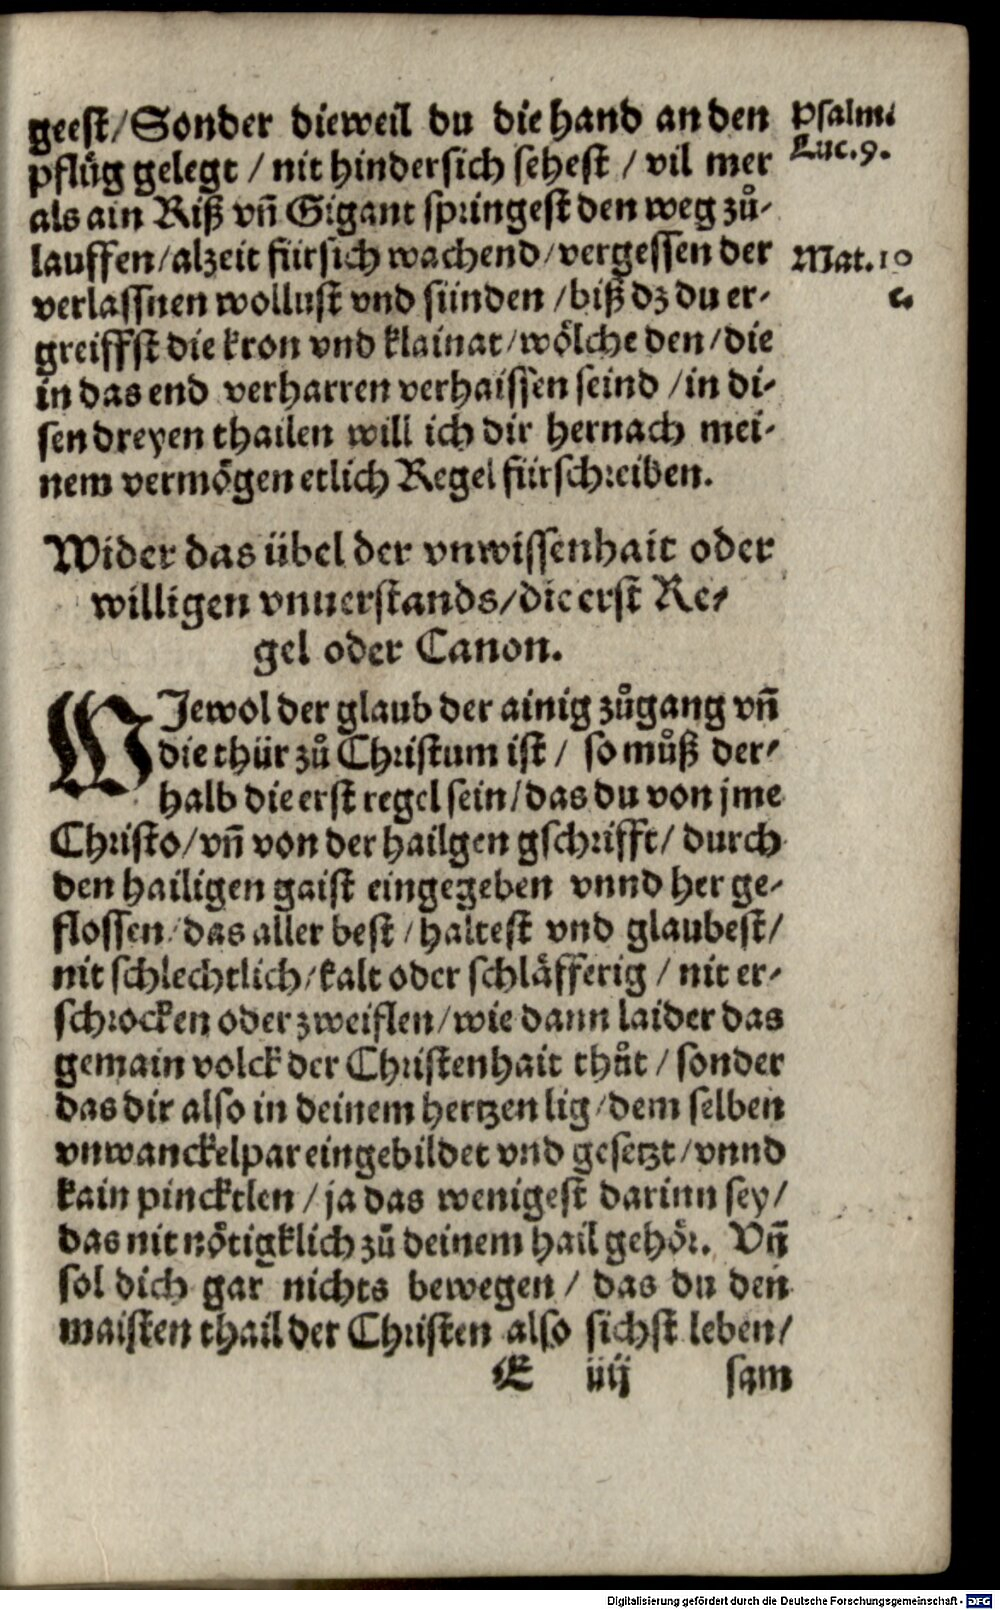 geest/Sonder dieweil du die hand an den
pflůg gelegt / nit hindersich sehest / vil mer
als ain Riß vñ Gigant springest den weg zů-
lauffen/alzeit fürsich wachend/vergessen der
verlassnen wollust vnd sünden /biß dz du er-
greiffst die kron vnd klainat/wölche den/die
in das end verharren verhaissen seind /in di-
sen dreyen thailen will ich dir hernach mei-
nem vermögen etlich Regel fürschreiben.
Psalm.
Luc.9.
Mat.10
c.
Wider das übel der vnwissenhait oder
willigen vnuerstands/die erst Re-
gel oder Canon.
WJewol der glaub der ainig zůgang vñ
die thür zů Christum ist / so můß der-
halb die erst regel sein/das du von jme
Christo/vñ von der hailgen gschrifft/ durch
den hailigen gaist eingegeben vnnd her ge-
flossen/das aller best/haltest vnd glaubest/
nit schlechtlich/kalt oder schläfferig / nit er-
schrocken oder zweiflen/wie dann laider das
gemain volck der Christenhait thůt / sonder
das dir also in deinem hertzen lig/dem selben
vnwanckelpar eingebildet vnd gesetzt/vnnd
kain pincktlen / ja das wenigest darinn sey/
das nit nötigklich zů deinem hail gehör. Vñ
sol dich gar nichts bewegen / das du den
maisten thail der Christen also sichst leben/
E iiij sam
Digitalisierung gefördert durch die Deutsche Forschungsgemeinschaft - DFG